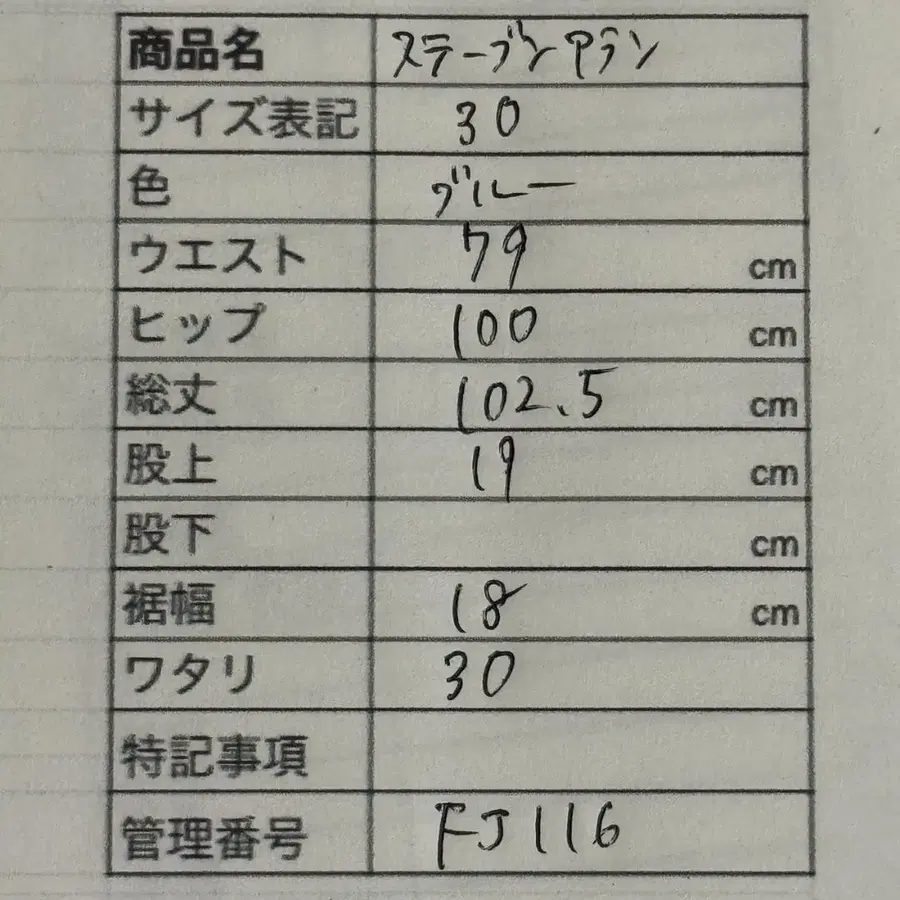 商品名 ステーブンアラン
サイズ表記 30
色 ブルー
ウエスト 79 cm
ヒップ 100 cm
総丈 102.5 cm
股上 19 cm
股下 cm
裾幅 18 cm
ワタリ 30
特記事項
管理番号 FJ116